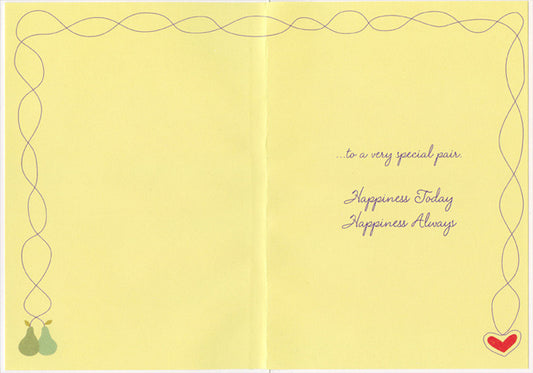 ...to a very special pair.
Happiness Today
Happiness Always